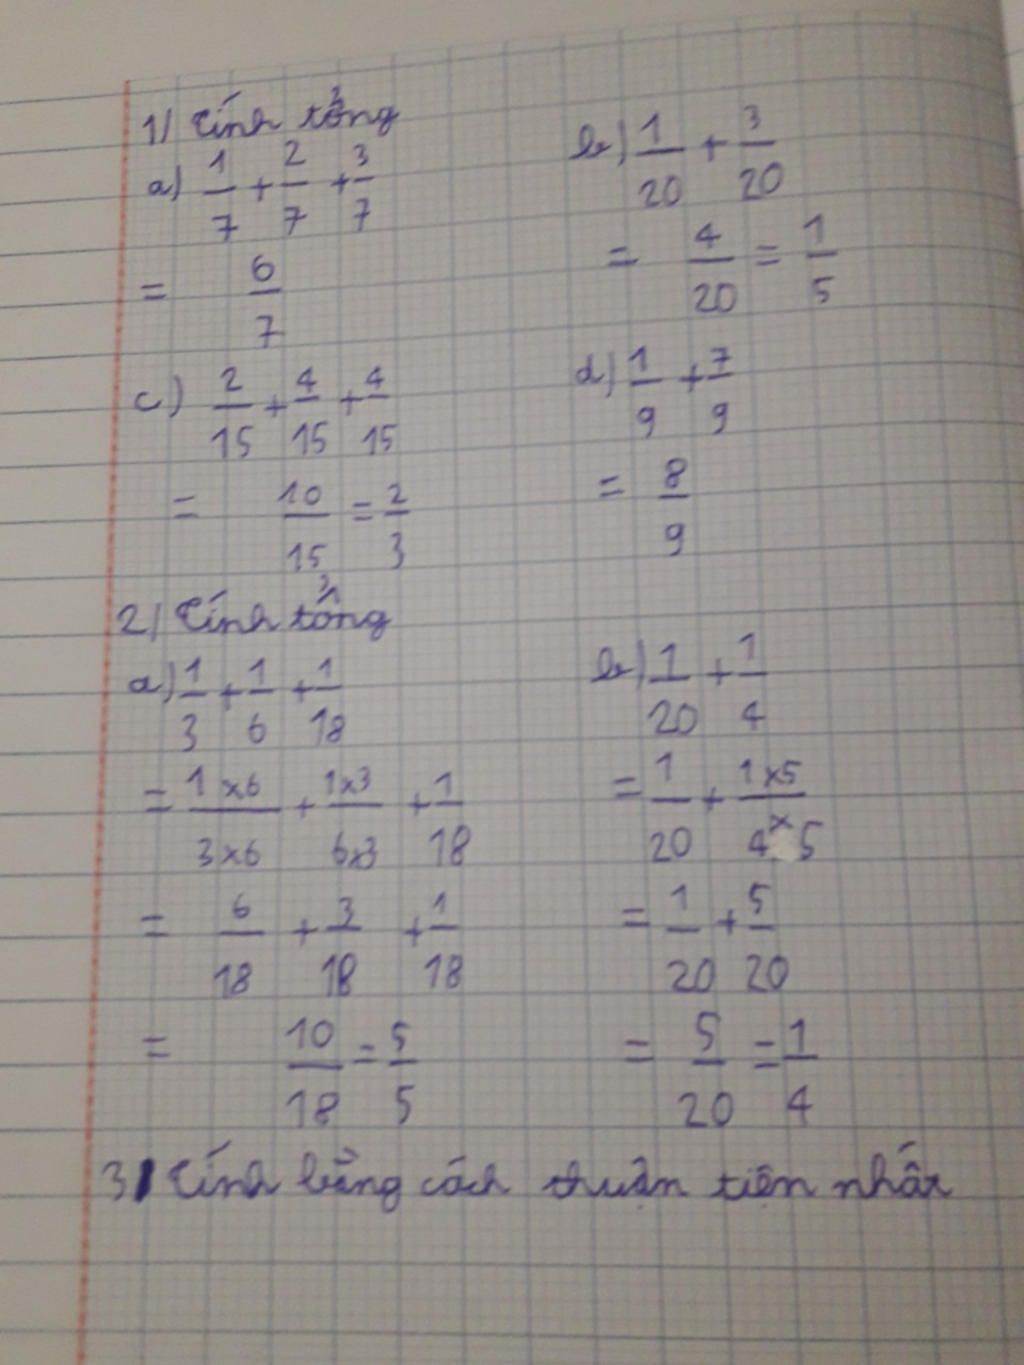 1/ Tính tổng
a) 1/7 + 2/7 + 3/7
= 6/7
b) 1/20 + 3/20
= 4/20 = 1/5
c) 2/15 + 4/15 + 4/15
= 10/15 = 2/3
d) 1/9 + 7/9
= 8/9
2/ Tính tổng
a) 1/3 + 1/6 + 1/18
= 1x6/3x6 + 1x3/6x3 + 1/18
= 6/18 + 3/18 + 1/18
= 10/18 = 5/5
b) 1/20 + 1/4
= 1/20 + 1x5/4x5
= 1/20 + 5/20
= 5/20 = 1/4
3/ Tính bằng cách thuận tiện nhất